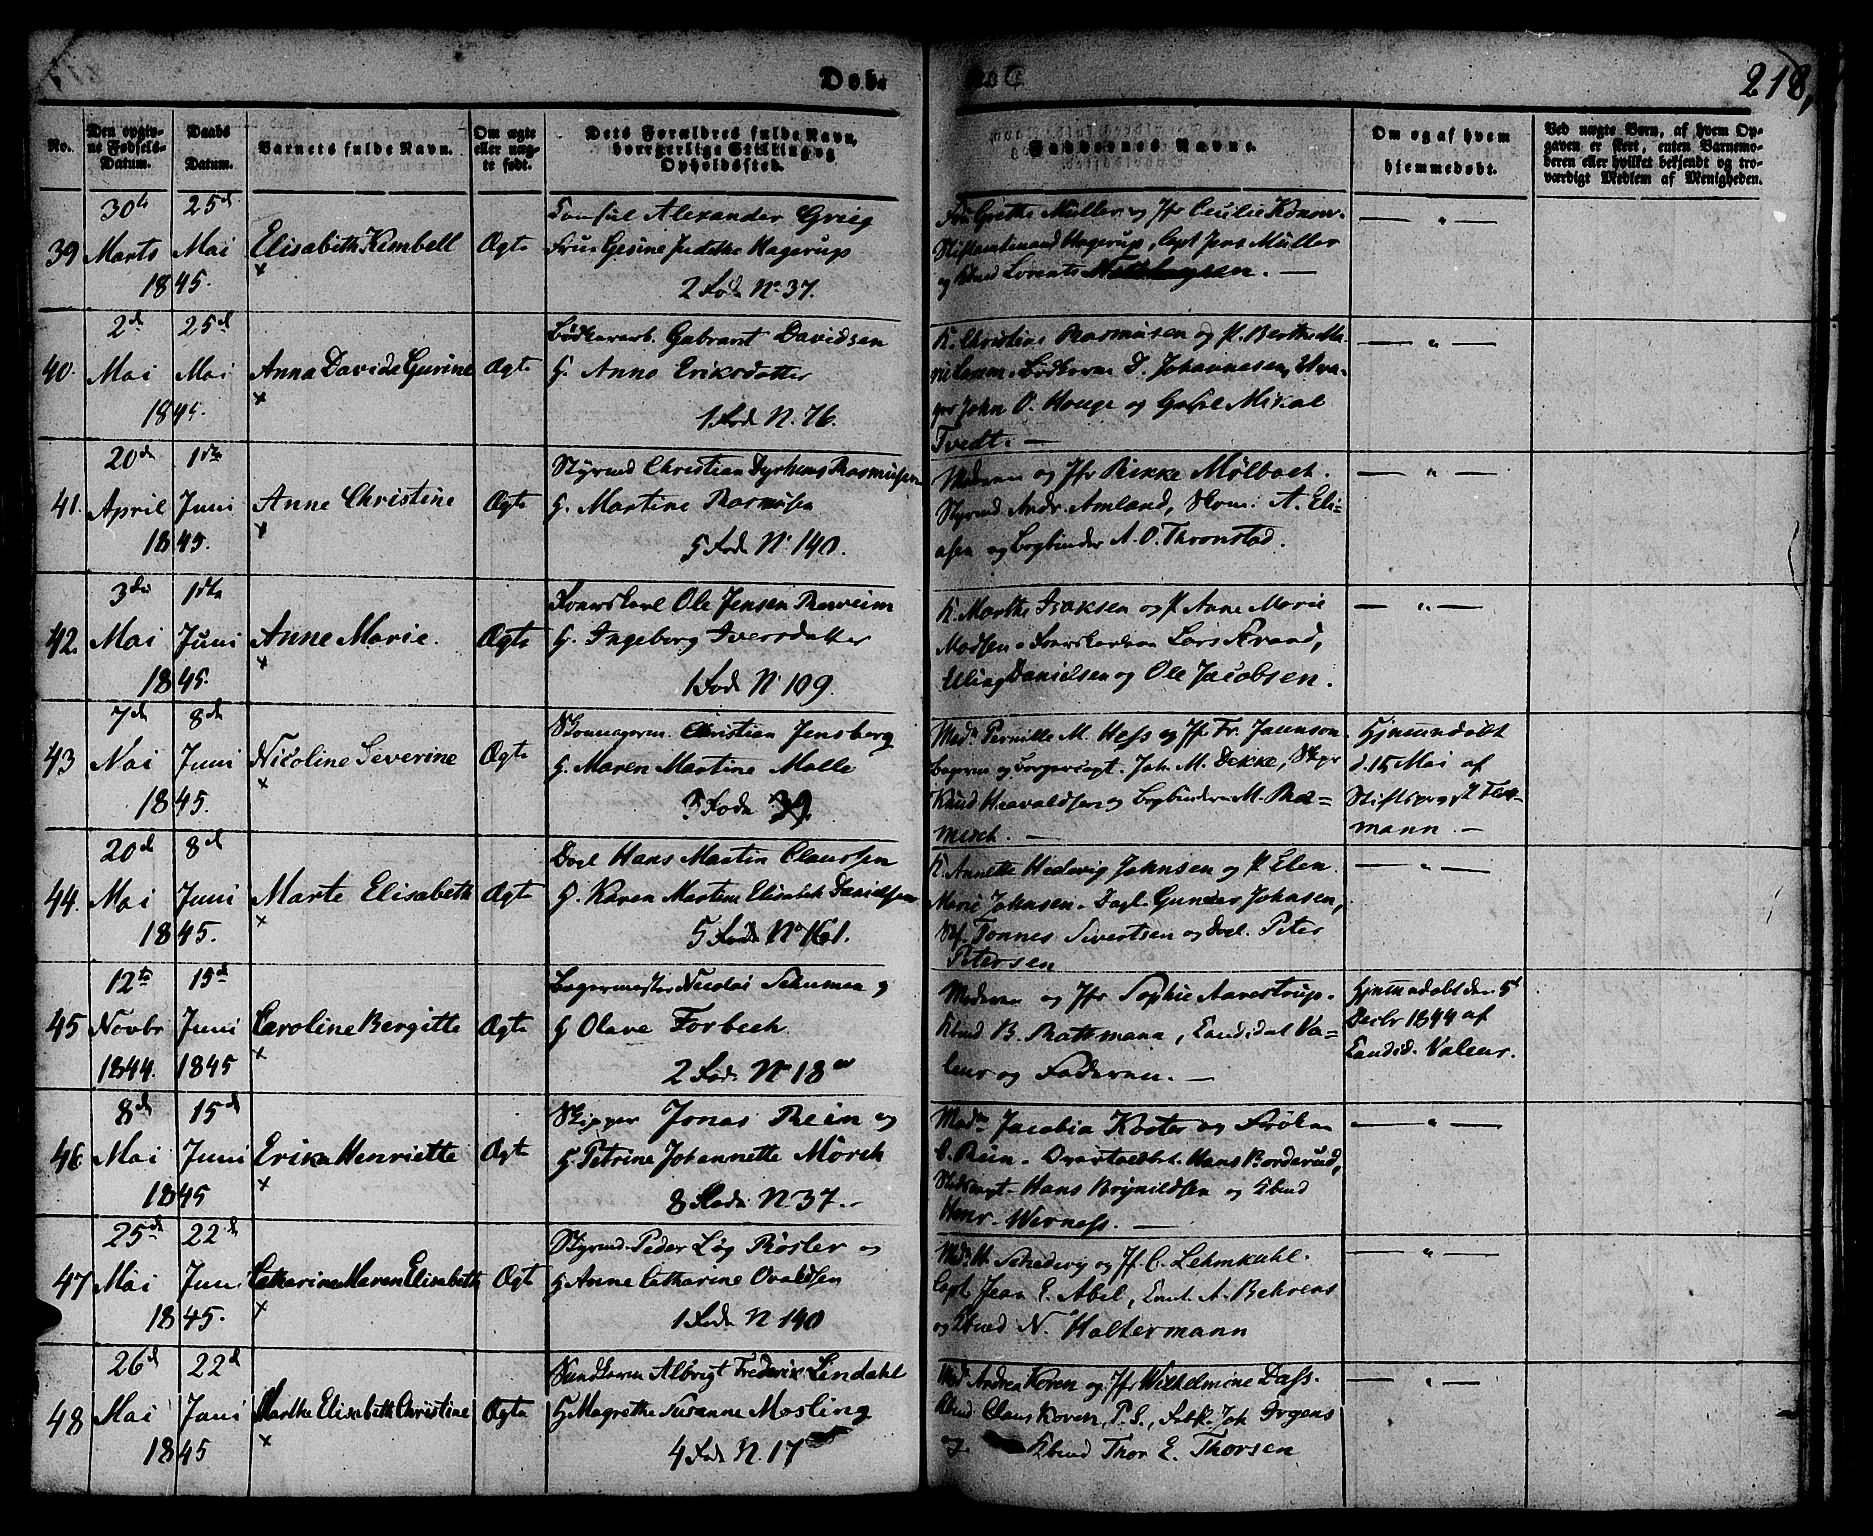 Døb.
218,
No.
Den opgiv-
ne Fødsels-
Datum.
Daabs
Datum.
Barnets fulde Navn.
Om ægte
eller uæg-
te født.
Dets Forældres fulde Navn,
borgerlige Stilling og
Opholdssted.
Faddernes Navne.
Om og af hvem
hjemmedøbt.
Ved uægte Børn, af hvem Op-
gaven er skeet, enten Barnemo-
deren eller hvilket bekjendt og tro-
værdigt Medlem af Menigheden.
39
30te Marts 1845.
25de Mai
Elisabeth Kimbell
Ægte
Consul Alexander Grieg
Frue Gesine Judithe Hagerup
2 Rode No 37.
Fru Grethe Müller og Jfr Cecilie Konow.
Stiftamtmand Hagerup, Capt Jens Müller
og Kbmd Lorents
— " —
40.
2de Mai 1845.
25de Mai
Anna Davide Gurine
Ægte
Bødkersv. Gabrant Davidsen
H. Anna Eriksdatter
1 Rode N. 76.
K. Christine Rasmusen og P. Berthe Ma-
rie Larsen. Bødkerne D. Johannesen,
John O. Houge og Mikal
Tvedt. —
— " —
41.
20de April 1845.
1ste Juni
Anne Christine
Ægte
Styrmd Christian Rasmussen
H. Martine Rasmusen
5 Rode No 140.
Moderen og Jfr Rikke Mølbach.
Styrmd Andr. Amland, Skom: A. Eli-
asen og Bogbinder A. O. Thronstad.
— " —
42.
3die Mai 1845.
1ste Juni
Anne Marie.
Ægte
Ole Jensen Røvveim
H. Ingeborg Iversdatter
1 Rode No 109.
K. Marthe Isaksen og P. Anne Marie
Madsen. Lars Strand,
Elling Danielsen og Ole Jacobsen.
— " —
43
7de Mai 1845.
8de Juni
Nicoline Severine
Ægte
Skomagerm. Christian Jensberg
H. Maren Martine Malle
3 Rode 39.
Madm Pernille M. Hess og Jfr Fr. Jannson
Bageren og Joh. M. Dekke,
Knud Haavaldsen og Bogbinder M. Ra-
misch. —
Hjemmedøbt
d. 15 Mai af
Stiftsprovst
mann. —
44.
20de Mai 1845.
8de Juni
Marte Elisabeth
Ægte
Dgl Hans Martin Claussen
H. Karen Martine Elisabeth Davidsen
5 Rode No 161.
K. Annette Hedevig Johnsen og P. Elen
Marie Johnsen. Dagl. Gunder Johnsen,
Tønnes Sivertsen og Dgl. Peter
Petersen
— " —
45
12te Novbr 1844.
15de Juni 1845
Caroline Bergitte
Ægte
Bagermester Nicolai Schuman og
H Olave Forbech
2 Rode No 18
Moderen og Jfr Sophie Aarestrup.
Kbmd B. Rattmann, Candidat Va-
leur og Faderen. —
Hjemmedøbt den 5t
Decbr 1844 af
Candid. Valeur.
46.
8de Mai 1845
15de Juni
Erika Henriette
Ægte
Skipper Jonas Rein og
H. Petrine Johannette Mørch
8 Rode N 37. -
Madm Jacobia Koster og Frøken
C. Rein. Hans Borderud,
Hans Brynildsen og Kbmd
Henr. Werness. —
— " —
47
25de Mai 1845.
22de Juni
Catharine Maren Elisabeth
Ægte
Styrmd Peder Løg Røsler og
H Anne Catharine
1 Rode N 190
Madm H Schedevy og Jfr C. Lehmkuhl.
Capt Jean E. Abel, A. Behrens
og Kbmd N. Haltermann
— " —
48
26de Mai 1845
22de Juni
Marthe Elisabeth Christine
Ægte
Albrigt Frederik Lindahl
H Magrethe Susanne Mosling
4 Rode N. 17
Mad Andrea Koren og Jfr Wilhelmine Dass.
Kbmd Claus Koren, P. S., Joh. Irgens
og Kbmd Thor E. Thorsen
— " —